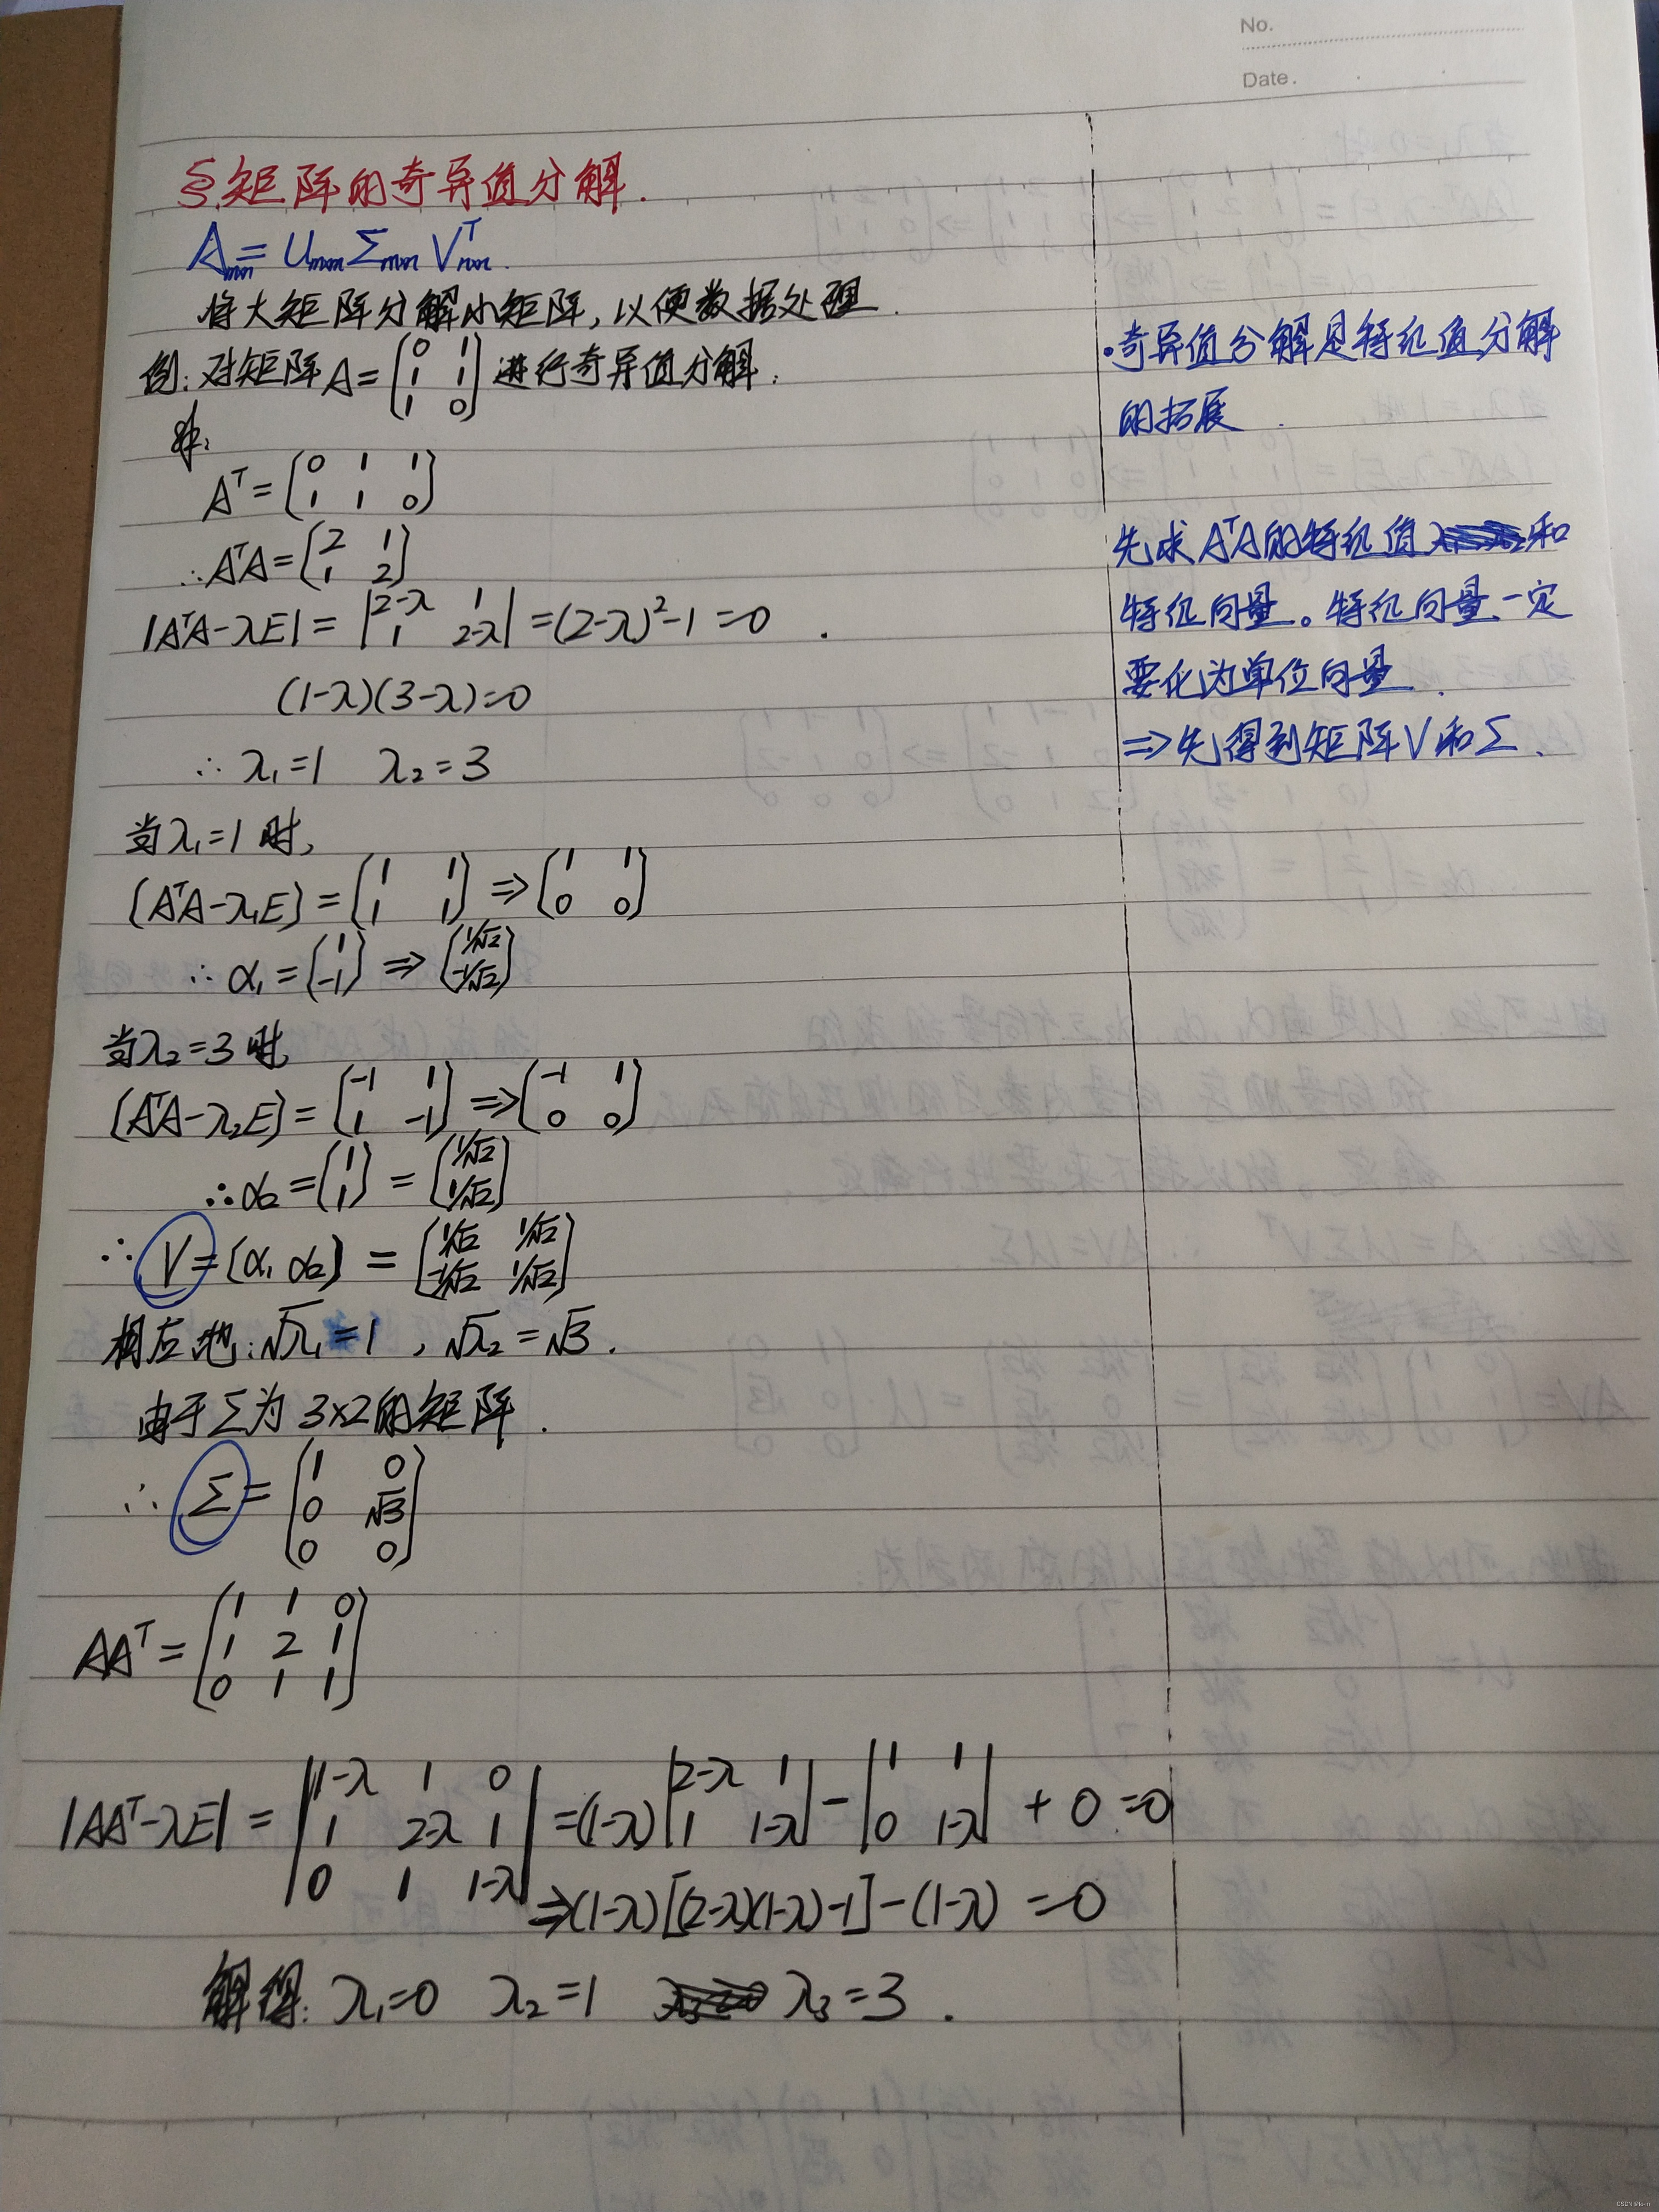 No.
Date.
§.矩阵的奇异值分解.
Amn = Umm Σmn Vᵀnn.
将大矩阵分解小矩阵,以便数据处理.
例:对矩阵A=(0 1; 1 1; 1 0)进行奇异值分解:
Aᵀ=(0 1 1; 1 1 0)
∴AᵀA=(2 1; 1 2)
|AᵀA-λE|=|2-λ 1; 1 2-λ|=(2-λ)²-1=0.
(1-λ)(3-λ)=0
∴ λ₁=1 λ₂=3
当λ₁=1时,
(AᵀA-λ₁E)=(1 1; 1 1)⇒(1 1; 0 0)
∴ α₁=(1; -1)⇒(1/√2; -1/√2)
当λ₂=3时,
(AᵀA-λ₂E)=(-1 1; 1 -1)⇒(-1 1; 0 0)
∴α₂=(1; 1)=(1/√2; 1/√2)
∴ V=(α₁ α₂)=(1/√2 1/√2; -1/√2 1/√2)
相应地:√λ₁=1,√λ₂=√3.
由于Σ为3×2的矩阵.
∴ Σ=(1 0; 0 √3; 0 0)
AAᵀ=(1 1 0; 1 2 1; 0 1 1)
|AAᵀ-λE|=|1-λ 1 0; 1 2-λ 1; 0 1 1-λ|=(1-λ)|2-λ 1; 1 1-λ|-|1 1; 0 1-λ|+0=0
⇒(1-λ)[(2-λ)(1-λ)-1]-(1-λ)=0
解得: λ₁=0 λ₂=1 λ₃=3.
•奇异值分解是特征值分解
的拓展.
先求AᵀA的特征值和
特征向量。特征向量一定
要化为单位向量.
⇒先得到矩阵V和Σ.